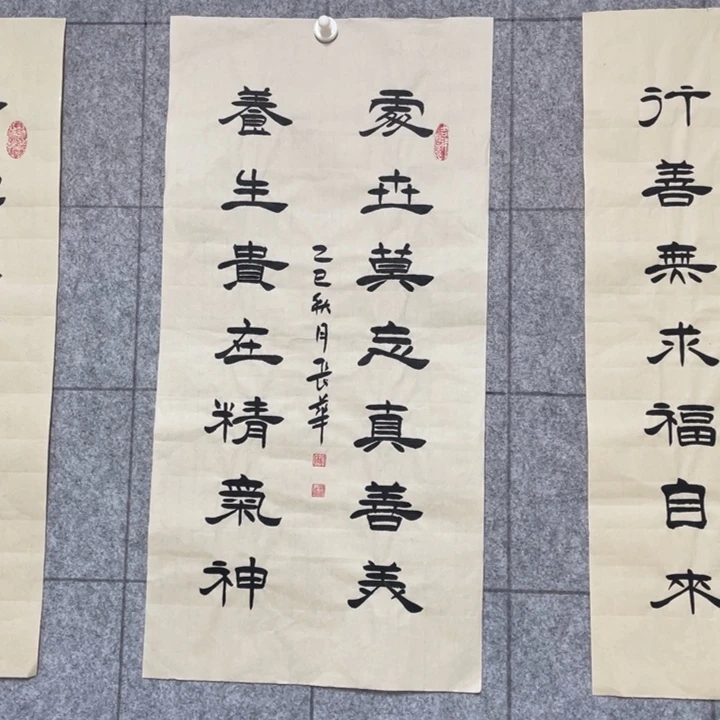 行善無求福自來
處世莫忘真善美
養生貴在精氣神
乙巳秋月長華